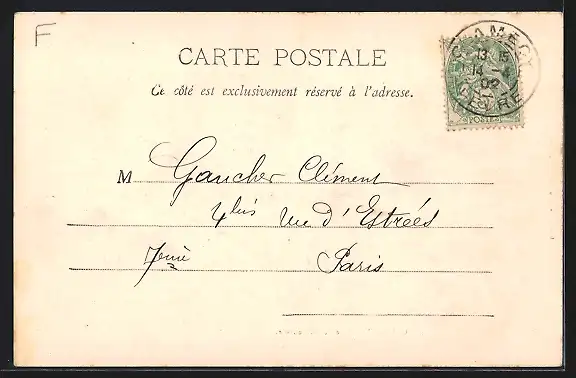 F
CARTE POSTALE
Ce côté est exclusivement réservé à l'adresse.
CLAMECY
13 15
14 -4
02
NIEVRE
POSTES
M Gaucher Clément
4bis rue d'Estréés
7eme Paris